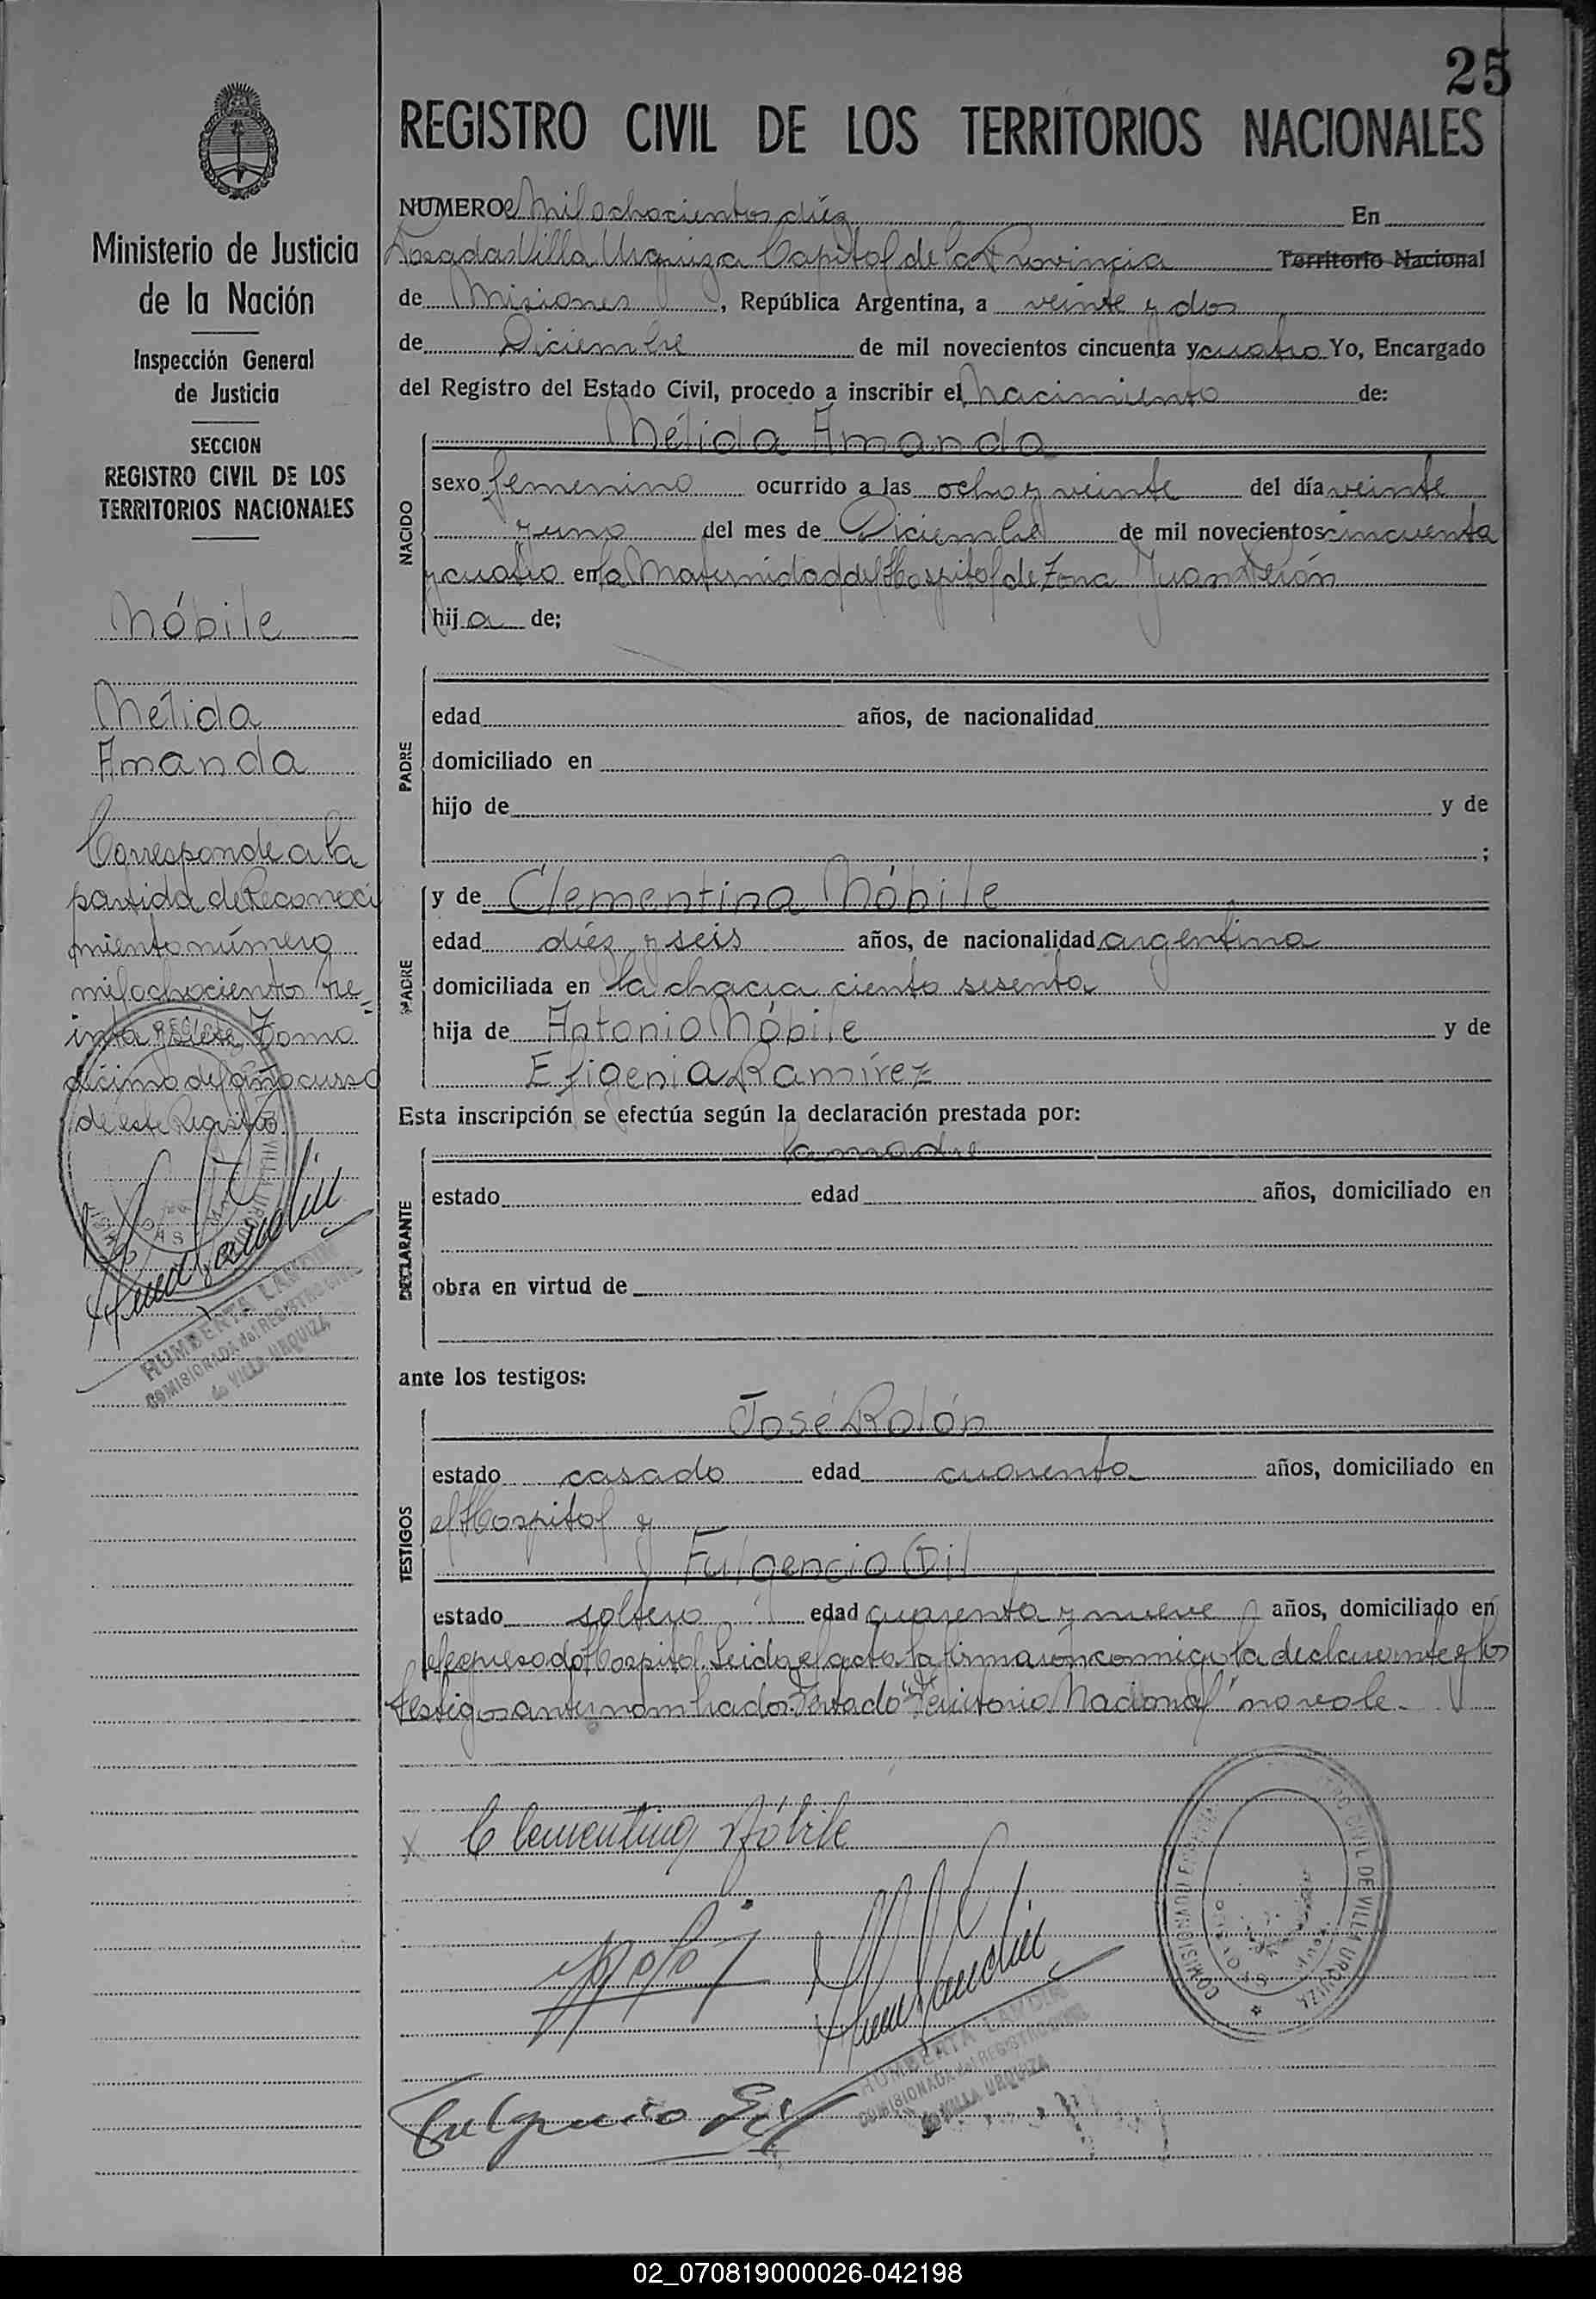 25
REGISTRO CIVIL DE LOS TERRITORIOS NACIONALES
Ministerio de Justicia
de la Nación
Inspección General
de Justicia
SECCION
REGISTRO CIVIL DE LOS
TERRITORIOS NACIONALES
Nóbile
Nélida
Amanda
Corresponde a la
partida de Reconoci
miento número
mil ochocientos tre=
inta y siete Tomo
décimo del año curso
de este Registro
HUMBERTA LANDIN
COMISIONADA del REGISTRO CIVIL
de VILLA URQUIZA
NUMERO mil ochocientos diéz En
Posadas Villa Urquiza Capital de la Provincia Territorio Nacional
de Misiones, República Argentina, a veinte y dos
de Diciembre de mil novecientos cincuenta y cuatro Yo, Encargado
del Registro del Estado Civil, procedo a inscribir el Nacimiento de:
NACIDO
Nélida Amanda
sexo femenino ocurrido a las ocho y veinte del día veinte
y uno del mes de Diciembre de mil novecientos cincuenta
y cuatro en la Maternidad del Hospital de Zona Juan Perón
hija de;
PADRE
edad años, de nacionalidad
domiciliado en
hijo de y de
;
MADRE
y de Clementina Nóbile
edad diéz y seis años, de nacionalidad argentina
domiciliada en la chacra ciento sesenta
hija de Antonio Nóbile y de
Efigenia Ramírez
Esta inscripción se efectúa según la declaración prestada por:
DECLARANTE
la madre
estado edad años, domiciliado en
obra en virtud de
ante los testigos:
TESTIGOS
José Rolón
estado casado edad cuarenta años, domiciliado en
el Hospital y
Fulgencio Gil
estado soltero edad cuarenta y nueve años, domiciliado en
el expresado Hospital. Leida el acta la firmaron conmigo la declarante y los
testigos antes nombrados. Testado "Territorio Nacional" no vale.
x Clementina Nóbile
COMISIONADO
REGISTRO CIVIL DE VILLA URQUIZA
HUMBERTA LANDIN
COMISIONADA del REGISTRO CIVIL
de VILLA URQUIZA
Fulgencio Gil
02_070819000026-042198